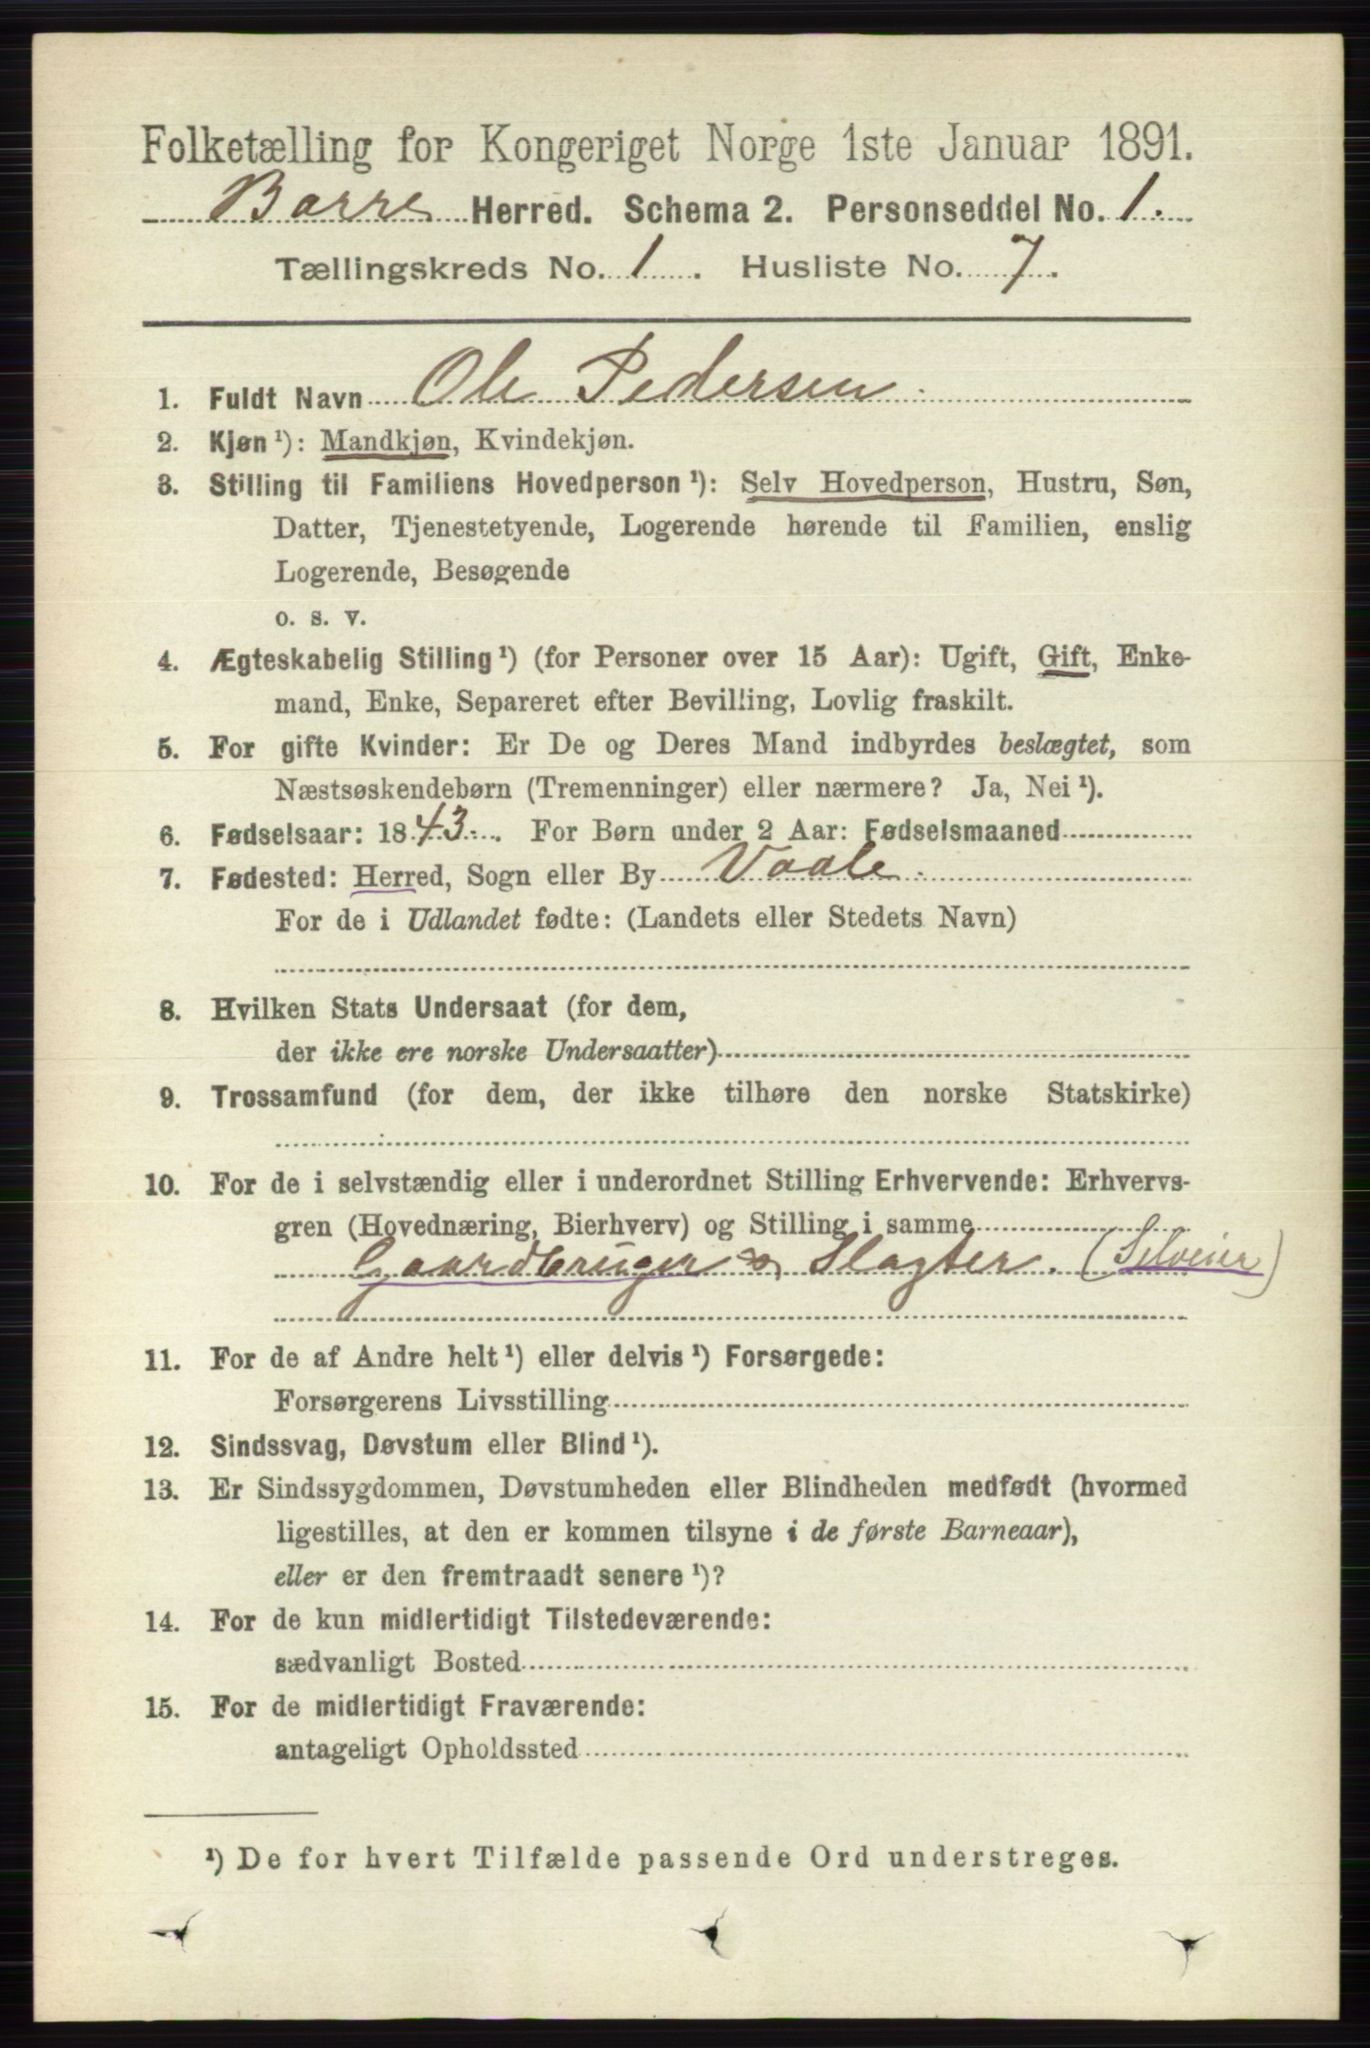 Folketælling for Kongeriget Norge 1ste Januar 1891.
Borre Herred. Schema 2. Personseddel No. 1.
Tællingskreds No. 1. Husliste No. 7.
1. Fuldt Navn Ole Pedersen.
2. Kjøn ¹): Mandkjøn, Kvindekjøn.
3. Stilling til Familiens Hovedperson ¹): Selv Hovedperson, Hustru, Søn,
Datter, Tjenestetyende, Logerende hørende til Familien, enslig
Logerende, Besøgende
o. s. v.
4. Ægteskabelig Stilling ¹) (for Personer over 15 Aar): Ugift, Gift, Enke-
mand, Enke, Separeret efter Bevilling, Lovlig fraskilt.
5. For gifte Kvinder: Er De og Deres Mand indbyrdes beslægtet, som
Næstsøskendebørn (Tremenninger) eller nærmere? Ja, Nei ¹).
6. Fødselsaar: 1843. For Børn under 2 Aar: Fødselsmaaned
7. Fødested: Herred, Sogn eller By Vaale.
For de i Udlandet fødte: (Landets eller Stedets Navn)
8. Hvilken Stats Undersaat (for dem,
der ikke ere norske Undersaatter)
9. Trossamfund (for dem, der ikke tilhøre den norske Statskirke)
10. For de i selvstændig eller i underordnet Stilling Erhvervende: Erhvervs-
gren (Hovednæring, Bierhverv) og Stilling i samme
Gaardbruger og Slagter. (Selveier)
11. For de af Andre helt ¹) eller delvis ¹) Forsørgede:
Forsørgerens Livsstilling
12. Sindssvag, Døvstum eller Blind ¹).
13. Er Sindssygdommen, Døvstumheden eller Blindheden medfødt (hvormed
ligestilles, at den er kommen tilsyne i de første Barneaar),
eller er den fremtraadt senere ¹)?
14. For de kun midlertidigt Tilstedeværende:
sædvanligt Bosted
15. For de midlertidigt Fraværende:
antageligt Opholdssted
¹) De for hvert Tilfælde passende Ord understreges.